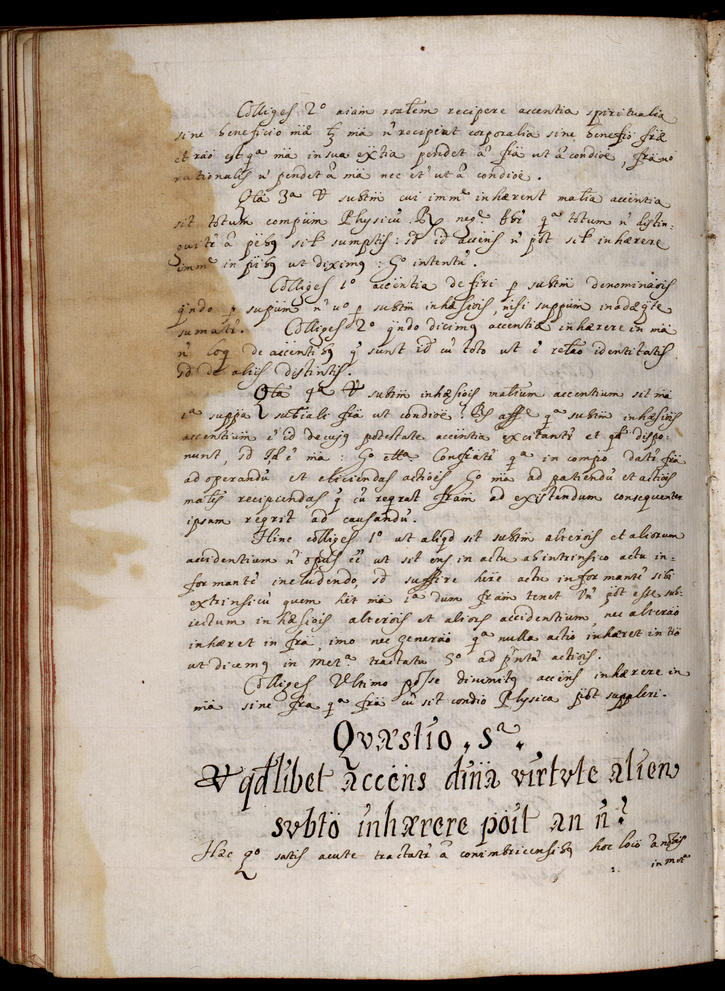 Colliges 2º aïam roalem recipere accentia spiritualia
sine beneficio mæ tz mä ñ recipeat corporalia sine benefio fræ
et rão est qª mä in sua extia pendet â frä ut â condiöe, frä vo
rationalis ñ pendet â mä nec et ut â condiöe.
Qtâ 3ª V subtm cui imme inhærent matia accentia
sit totum compum Physicü. Rx nege qª totum ñ distin:
guite â ptibq sil sumptis: sd id accens ñ pöt sil inhærere
imme in ptibq ut diximq: Gº intentũ.
Colliges 1º accentia defiri p subtm denominäois
qndo p supüm ñ vº p subtm inhæsiois, nisi suppum inadæqte
sumati. Colliges 2º qndo dicimq accentia inhærere in mä
ñ loq de accentibq q sunt id cũ toto ut ê retao identitatis
sd de aliis distinctis.
Qtâ 4ª V subtm inhæsiois matium accentium sit mä
1ª suppª subtiale frä ut condioë? Rx affe qª subtm inhæsiois
accentium ê id de cujq potestate accentia excitantr et qd dispo:
nunt, sd id ê mä: Gº etta Confirati qª in compo datr frä
ad operandũ et eliciendas actiöes Gº mä ad patiendũ et actiöis
matis recipiendas q cũ reqrat fram ad existendum consequenter
ipsam reqrit ad causandũ.
Hinc colliges 1º ut aliqd sit subtm alterois et aliorum
accidentium ñ opus eë ut sit ens in actu ab intrinsico actu in:
formante includendo, sd suffire hëre actu informante sibi
extrinsicũ quem hët mä 1ª dum fram tenet Vñ pöt esse sub:
iectum inhæsiois alterois et aliors accidentium, nec alterao
inhæret in frä, imo nec generao qª nulla actio inhæret in tiö
ut dicemq in Metª. tractatu 5º ad pintũ actiois.
Colliges Vltimo posse divinitq accens inhærere in
mä sine fra qª frä cũ sit condio Physica pöt suppleri.
Qvæstio, 5ª.
V qdlibet accens dinä virtvte alien
svbtö inhærere pöit an ñ?
Hæc qº satis acute tractati â conimbricensibq hoc locö
in motª